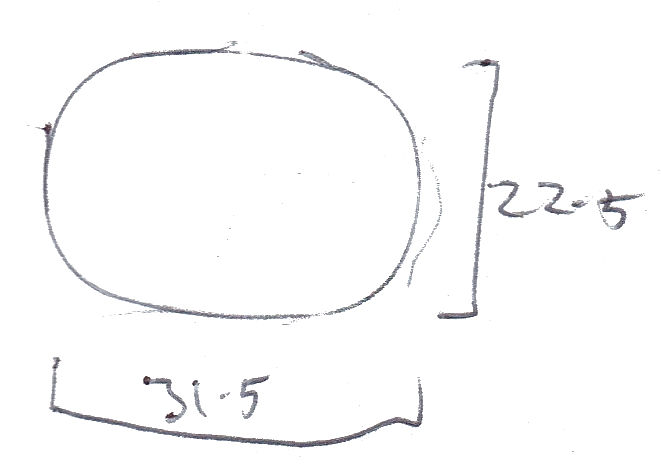 22.5
31.5